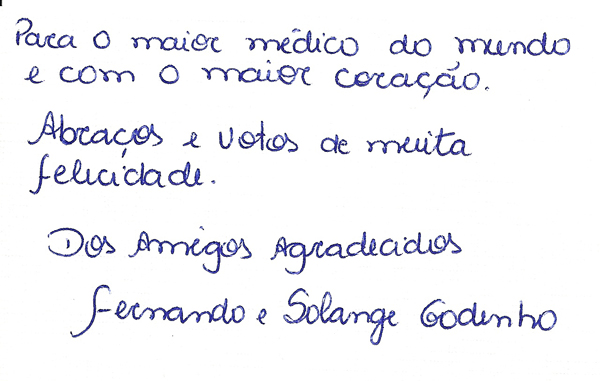 Para o maior médico do mundo
e com o maior coração.
Abraços e votos de muita
felicidade.
Dos Amigos Agradecidos
Fernando e Solange Godinho